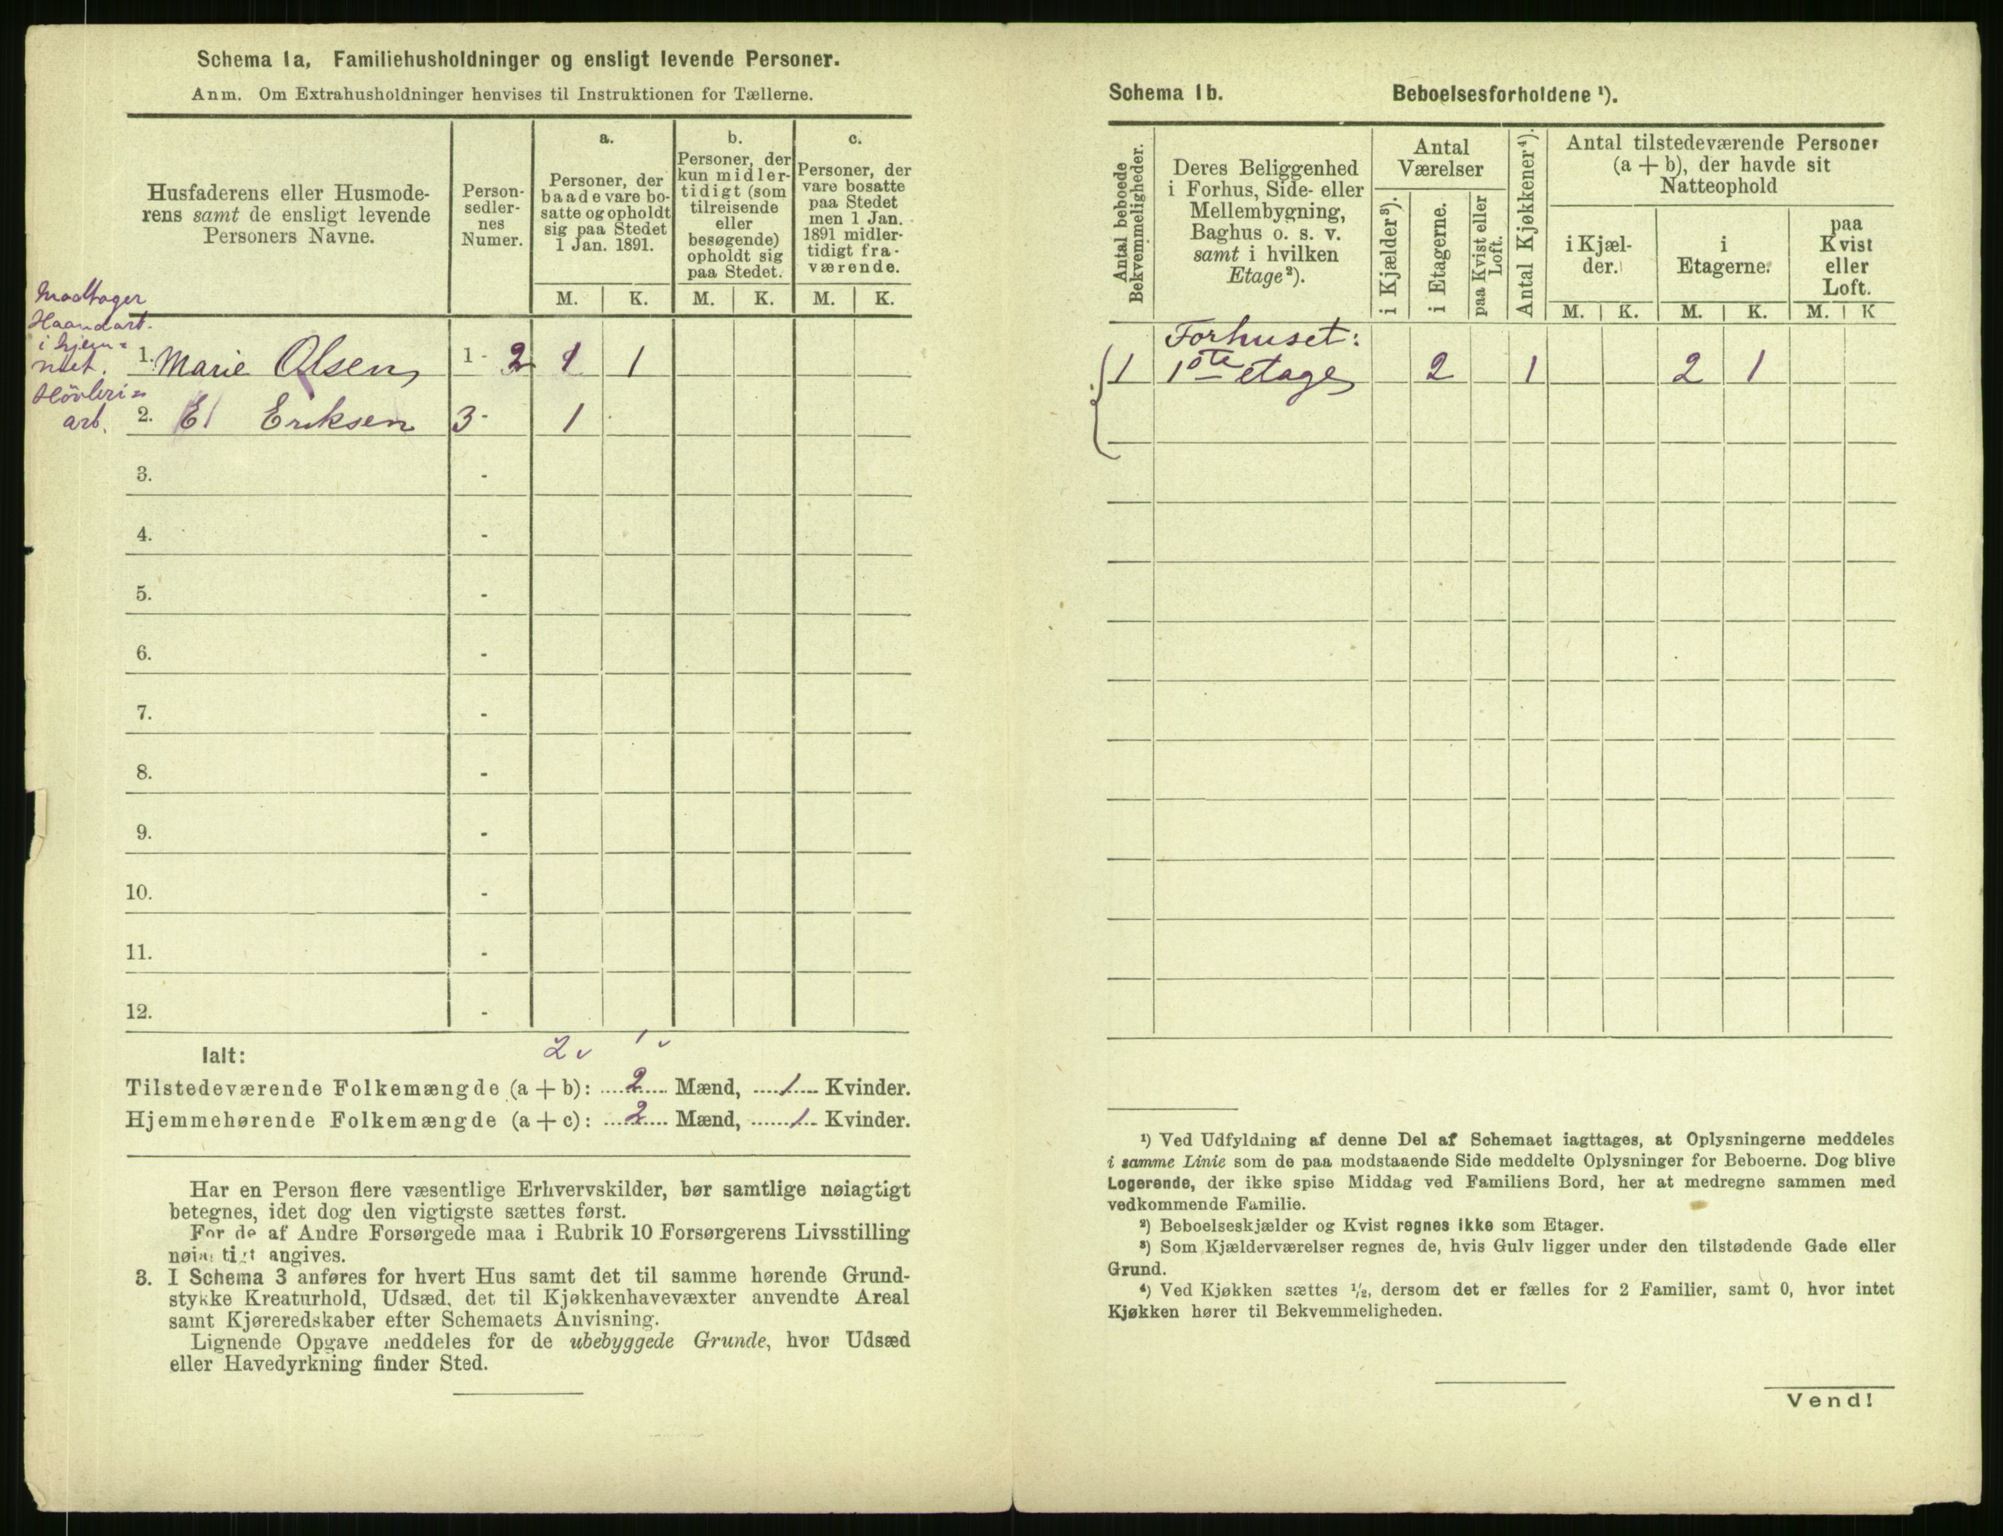 Schema 1a, Familiehusholdninger og ensligt levende Personer.
Anm. Om Extrahusholdninger henvises til Instruktionen for Tællerne.
Husfaderens eller Husmode-
rens samt de ensligt levende
Personers Navne.
Person-
sedler-
nes
Numer.
a.
Personer, der
baade vare bo-
satte og opholdt
sig paa Stedet
1 Jan. 1891.
b.
Personer, der
kun midler-
tidigt (som
tilreisende
eller
besøgende)
opholdt sig
paa Stedet.
c.
Personer, der
vare bosatte
paa Stedet
men 1 Jan.
1891 midler-
tidigt fra-
værende.
M. K. M. K. M. K.
Modtager
Haandart.
i hjem=
met.
1. Marie Olsen 1 - 2 1 1
Høvleri=
art.
2. E Eriksen 3 - 1
3. -
4. -
5. -
6. -
7. -
8. -
9. -
10. -
11. -
12. -
2 1
Ialt:
Tilstedeværende Folkemængde (a + b): 2 Mænd, 1 Kvinder.
Hjemmehørende Folkemængde (a + c): 2 Mænd, 1 Kvinder.
Har en Person flere væsentlige Erhvervskilder, bør samtlige nøiagtigt
betegnes, idet dog den vigtigste sættes først.
For de af Andre Forsørgede maa i Rubrik 10 Forsørgerens Livsstilling
nøiagtigt angives.
3. I Schema 3 anføres for hvert Hus samt det til samme hørende Grund-
stykke Kreaturhold, Udsæd, det til Kjøkkenhavevæxter anvendte Areal
samt Kjøreredskaber efter Schemaets Anvisning.
Lignende Opgave meddeles for de ubebyggede Grunde, hvor Udsæd
eller Havedyrkning finder Sted.
Schema 1b. Beboelsesforholdene ¹).
Antal beboede
Bekvemmeligheder.
Deres Beliggenhed
i Forhus, Side- eller
Mellembygning,
Baghus o. s. v.
samt i hvilken
Etage²).
Antal
Værelser
i Kjælder³).
i Etagerne.
paa Kvist eller
Loft.
Antal Kjøkkener⁴).
Antal tilstedeværende Personer
(a + b), der havde sit
Natteophold
i Kjæl-
der.
i
Etagerne.
paa
Kvist
eller
Loft.
M. K. M. K. M. K
Forhuset:
1 1ste etage 2 1 2 1
¹) Ved Udfyldning af denne Del af Schemaet iagttages, at Oplysningerne meddeles
i samme Linie som de paa modstaaende Side meddelte Oplysninger for Beboerne. Dog blive
Logerende, der ikke spise Middag ved Familiens Bord, her at medregne sammen med
vedkommende Familie.
²) Beboelseskjælder og Kvist regnes ikke som Etager.
³) Som Kjælderværelser regnes de, hvis Gulv ligger under den tilstødende Gade eller
Grund.
⁴) Ved Kjøkken sættes ½, dersom det er fælles for 2 Familier, samt 0, hvor intet
Kjøkken hører til Bekvemmeligheden.
Vend!